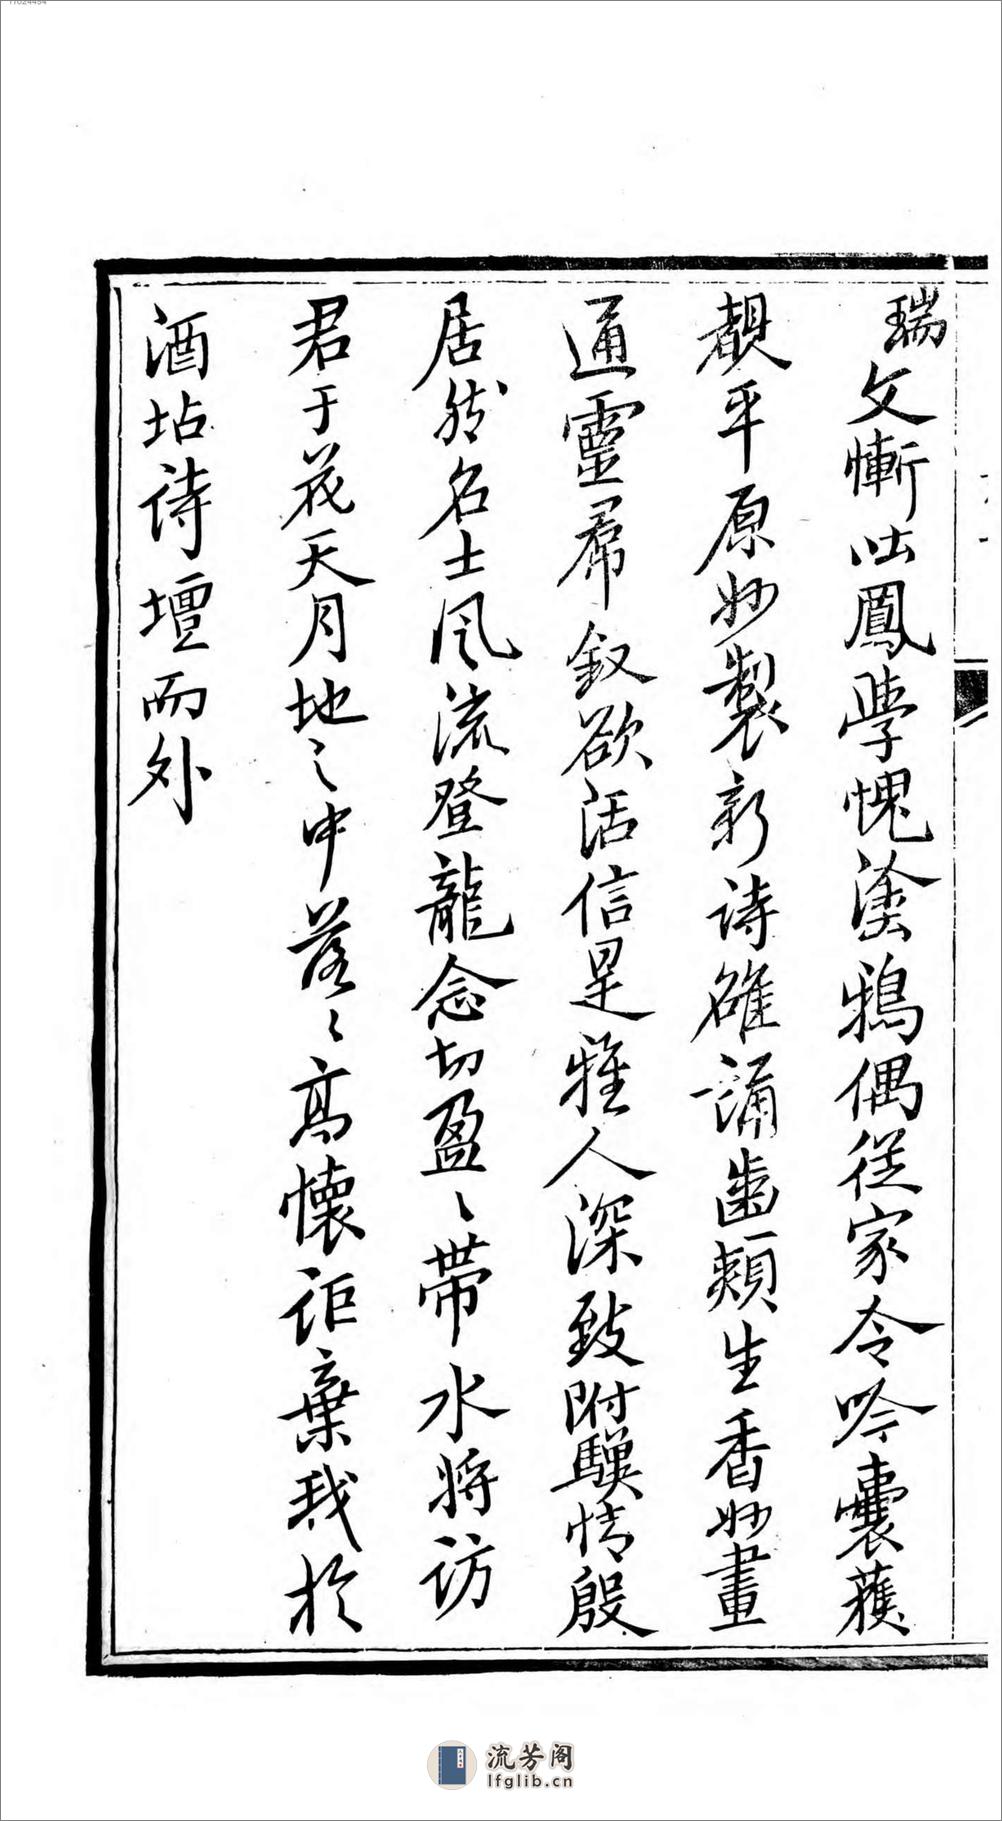 瑞文慚吐鳳學愧塗鴉偶從家令吟囊獲
覩平原妙製新詩確誦齒頰生香妙畫
通靈帬釵欲活信是雅人深致附驥情殷
居然名士風流登龍念切盈〻帶水將訪
君于花天月地之中落〻高懷詎棄我於
酒坫詩壇而外
流芳阁
lfglib.cn